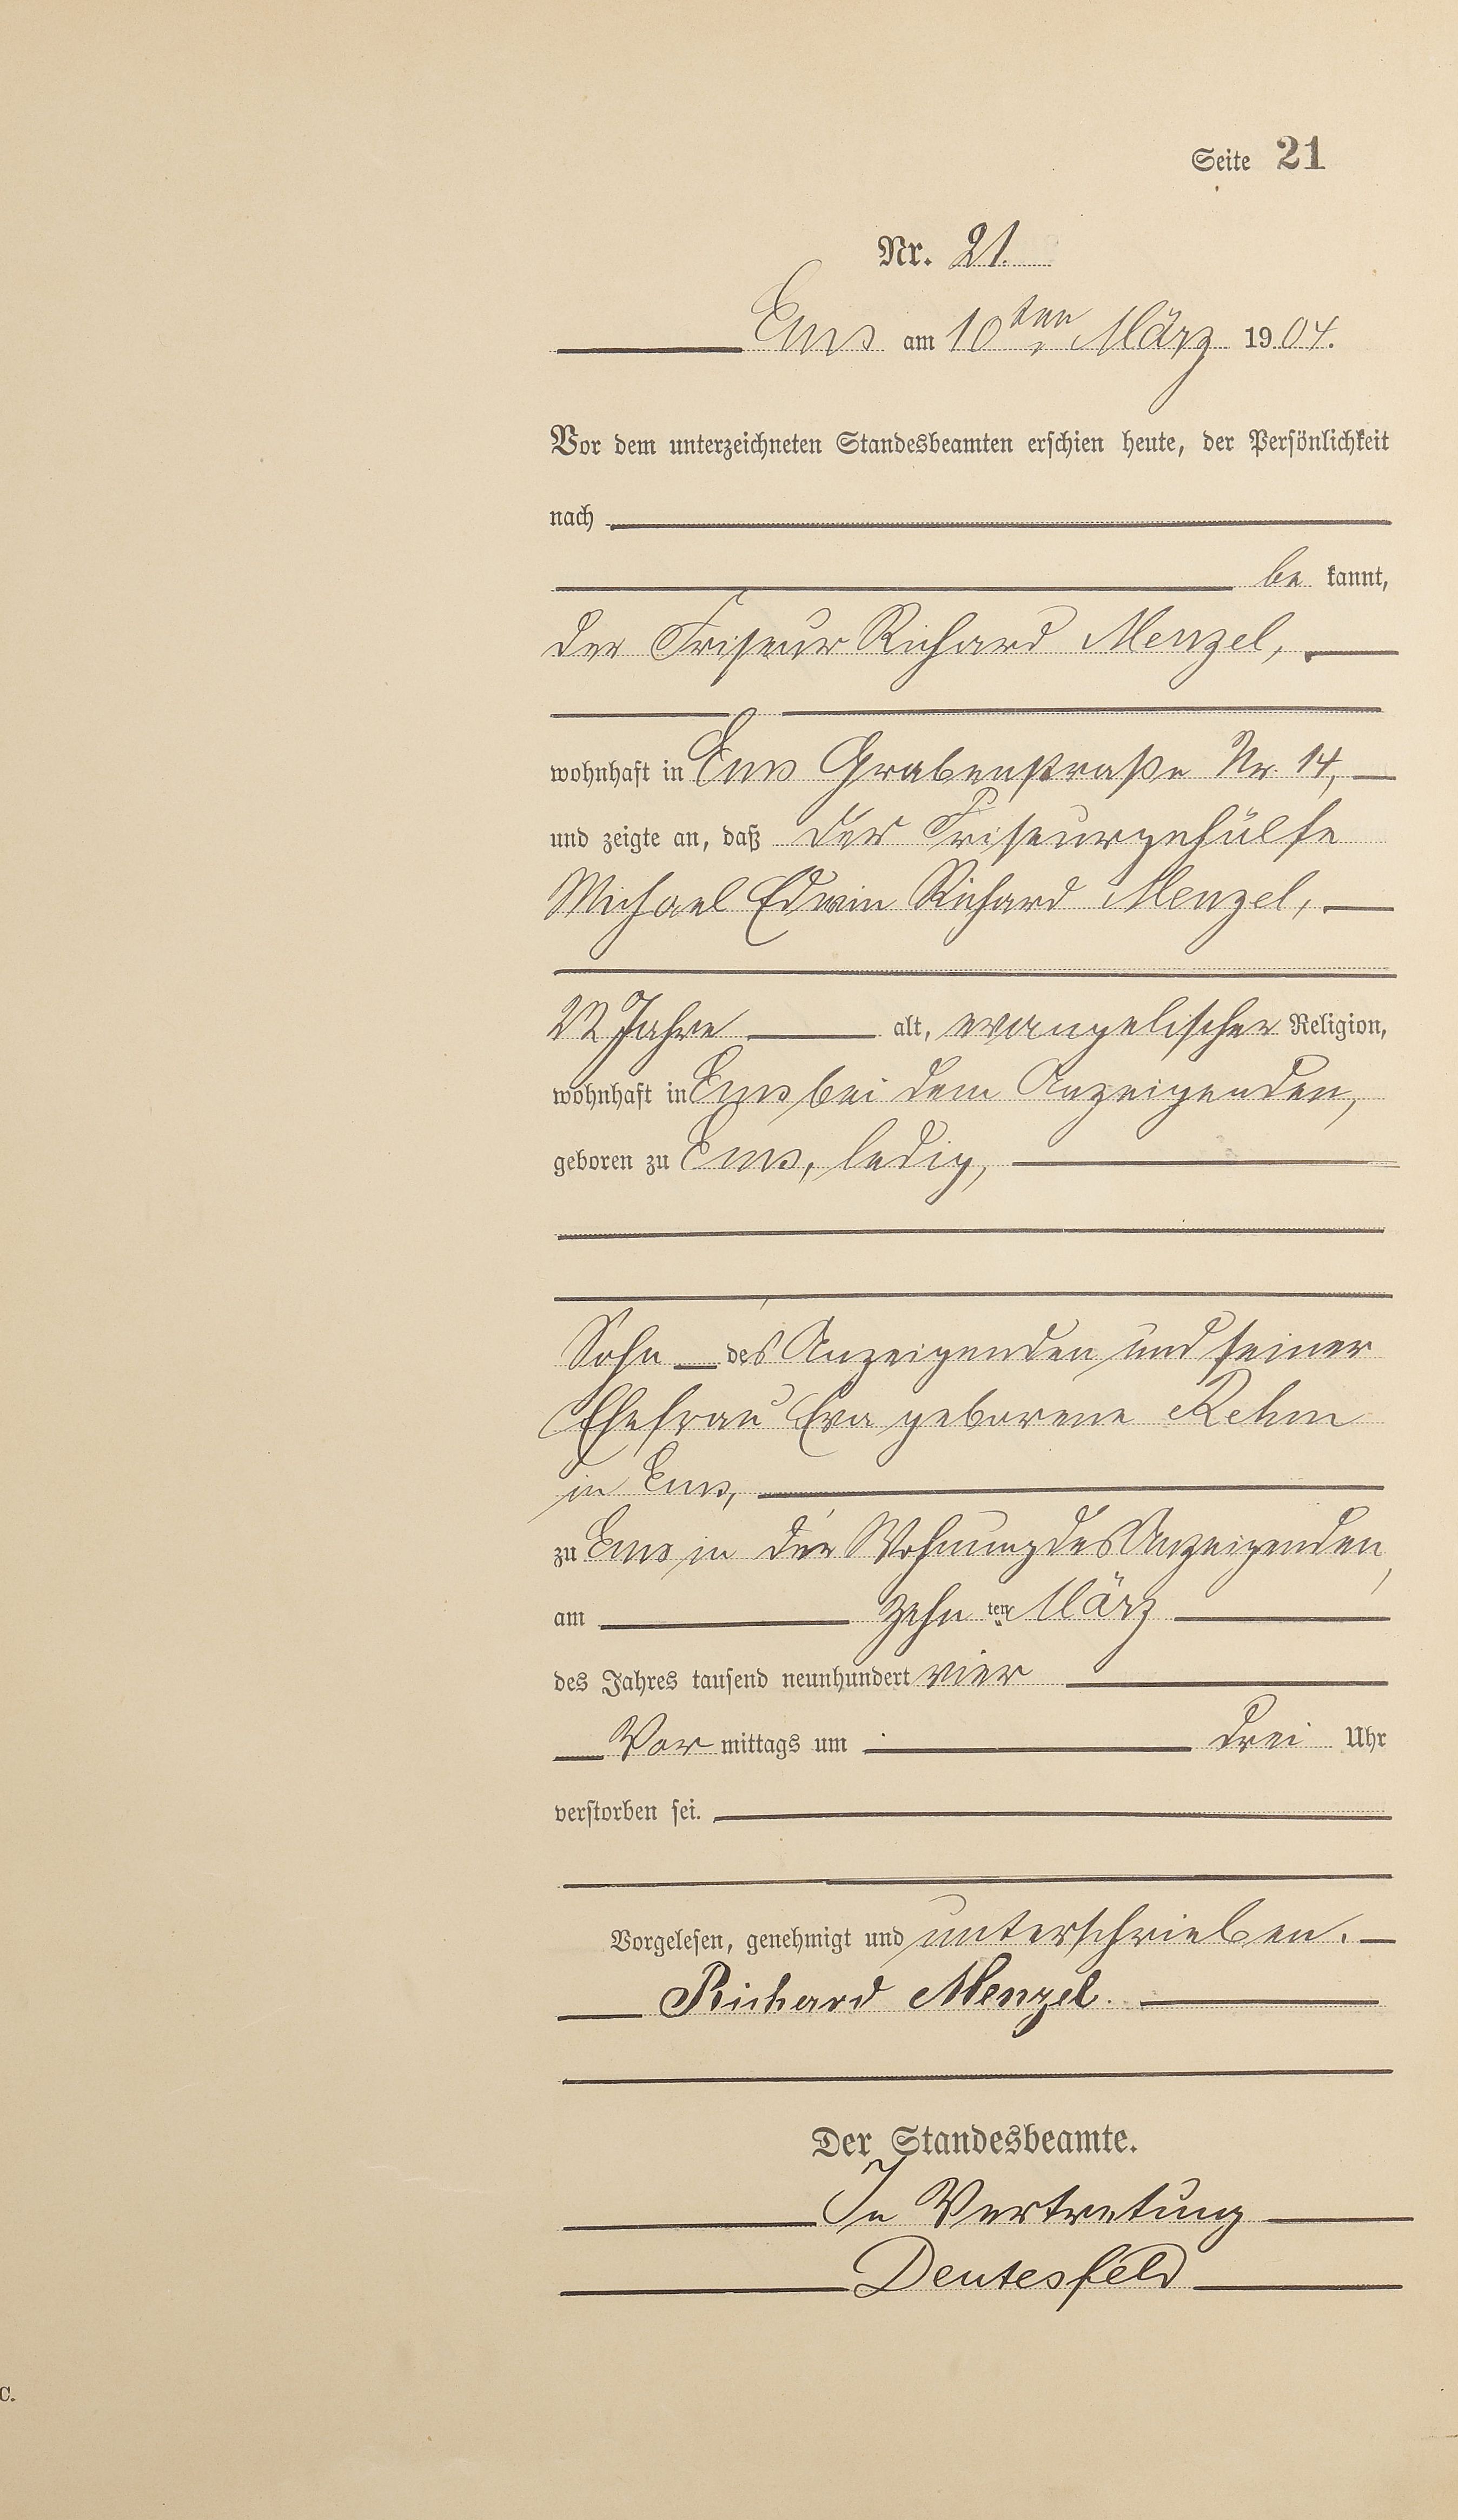 Seite 21
Nr. 21.
Ems am 10ten März 1904.
Vor dem unterzeichneten Standesbeamten erschien heute, der Persönlichkeit
nach
be kannt,
der Friseur Richard Menzel,
wohnhaft in Ems Grabenstraße Nr. 14,
und zeigte an, daß der Friseurgehülfe
Michael Edwin Richard Menzel,
22 Jahre alt, evangelischer Religion,
wohnhaft in Ems bei dem Anzeigenden,
geboren zu Ems, ledig,
Sohn des Anzeigenden und seiner
Ehefrau Eva geborene Rehm
in Ems,
zu Ems in der Wohnung des Anzeigenden,
am zehn ten März
des Jahres tausend neunhundert vier
Vor mittags um drei Uhr
verstorben sei.
Vorgelesen, genehmigt und unterschrieben.
Richard Menzel.
Der Standesbeamte.
In Vertretung
Deutesfeld
C.